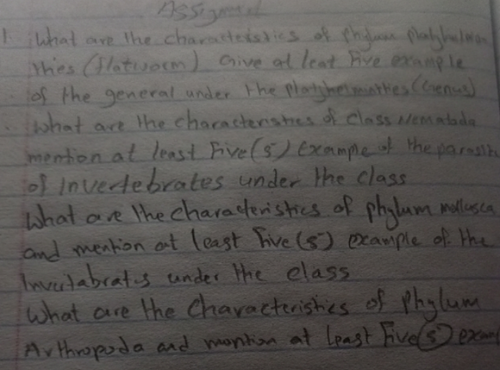 Assignment
1. What are the characteristics of phylum platyhelmin
thies (flatworm) Give at leat five example
of the general under the platyhelminthes (Genus)
What are the characteristics of class Nematoda
mention at least Five (5) Example of the parasite
of Invertebrates under the class
What are the characteristics of phylum mollusca
and mention at least five (5) example of the
Invertabrates under the class
What are the characteristics of phylum
Arthropoda and mention at least five (5) exam